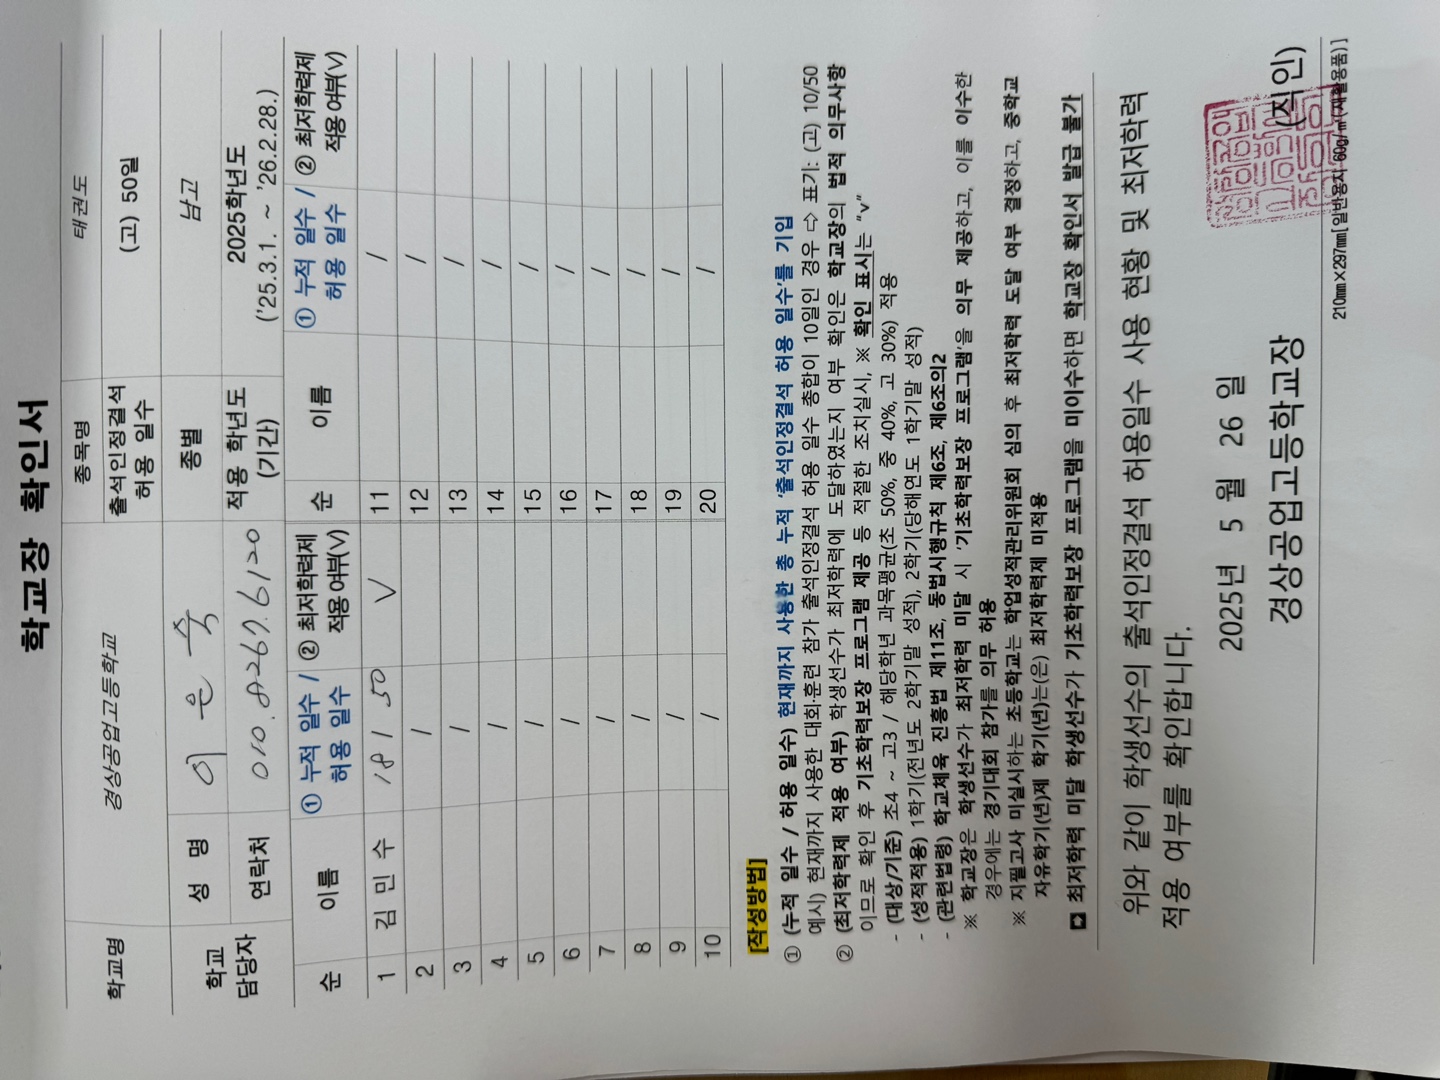 학교장 확인서
학교명 경상공업고등학교 종목명 태권도
출석인정결석 허용 일수 (고) 50일
학교 담당자 성 명 이 은 숙 종별 남고
연락처 010. 8267. 6120 적용 학년도 (기간) 2025학년도 ('25.3.1. ~ '26.2.28.)
순 이름 ① 누적 일수 / 허용 일수 ② 최저학력제 적용여부(V) 순 이름 ① 누적 일수 / 허용 일수 ② 최저학력제 적용여부(V)
1 김 민 수 18 / 50 V 11 /
2 / 12 /
3 / 13 /
4 / 14 /
5 / 15 /
6 / 16 /
7 / 17 /
8 / 18 /
9 / 19 /
10 / 20 /
[작성방법]
① (누적 일수 / 허용 일수) 현재까지 사용한 총 누적 '출석인정결석 허용 일수'를 기입
예시) 현재까지 사용한 대회·훈련 참가 출석인정결석 허용 일수 총합이 10일인 경우 ⇨ 표기: (고) 10/50
② (최저학력제 적용 여부) 학생선수가 최저학력에 도달하였는지 여부 확인은 학교장의 법적 의무사항
이므로 확인 후 기초학력보장 프로그램 제공 등 적절한 조치실시, ※ 확인 표시는 "v"
- (대상/기준) 초4 ~ 고3 / 해당학년 과목평균(초 50%, 중 40%, 고 30%) 적용
- (성적적용) 1학기(전년도 2학기말 성적), 2학기(당해연도 1학기말 성적)
- (관련법령) 학교체육 진흥법 제11조, 동법시행규칙 제6조, 제6조의2
※ 학교장은 학생선수가 최저학력 미달 시 '기초학력보장 프로그램'을 의무 제공하고, 이를 이수한
경우에는 경기대회 참가를 의무 허용
※ 지필고사 미실시하는 초등학교는 학업성적관리위원회 심의 후 최저학력 도달 여부 결정하고, 중학교
자유학기(년)제 학기(년)는(은) 최저학력제 미적용
◘ 최저학력 미달 학생선수가 기초학력보장 프로그램을 미이수하면 학교장 확인서 발급 불가
위와 같이 학생선수의 출석인정결석 허용일수 사용 현황 및 최저학력
적용 여부를 확인합니다.
2025년 5 월 26 일
경상공업고등학교장 (직인)
210㎜×297㎜[일반용지 60g/㎡(재활용품)]